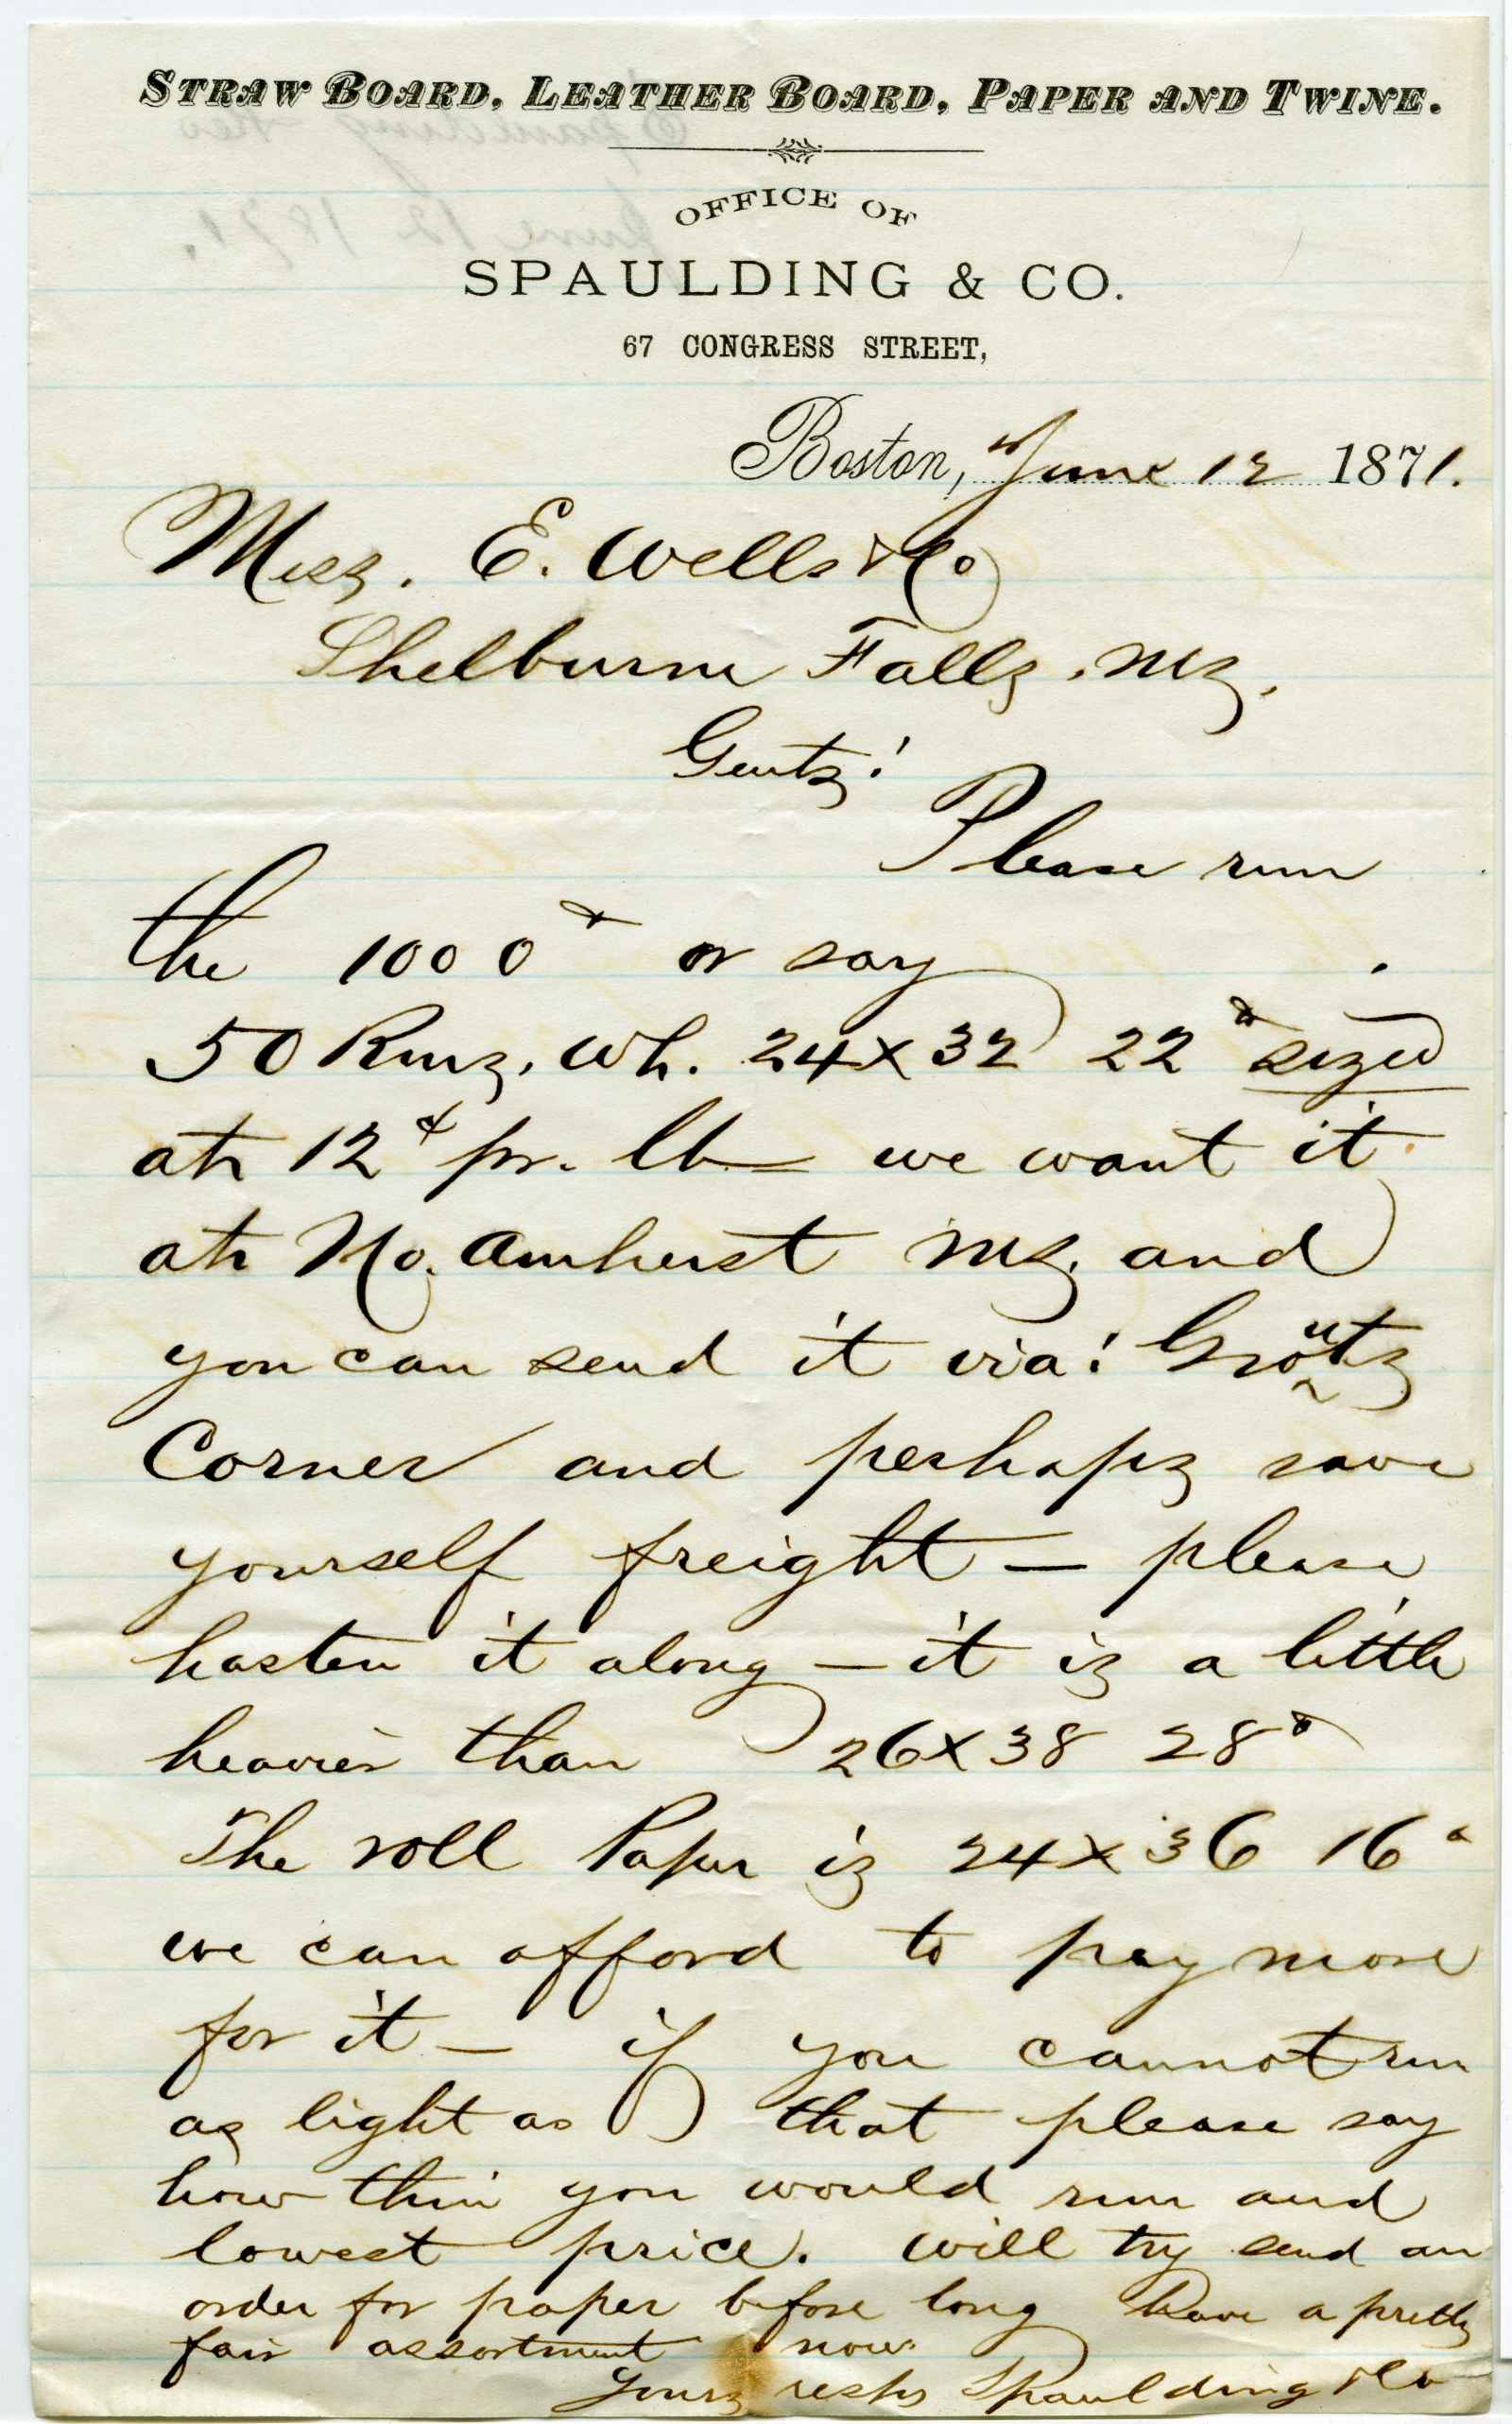 STRAW BOARD, LEATHER BOARD, PAPER AND TWINE.
OFFICE OF
SPAULDING & CO.
67 CONGRESS STREET,
Boston, June 12 1871.
Mess. E. Wells & Co
Shelburne Falls, Ms,
Gents!
Please run
the 1000# or say
50 Rms, Wh. 24x32 22# sized
at 12¢ pr. lb — we want it
at No. Amherst Ms, and
you can send it via! Grouts
Corner and perhaps save
yourself freight — please
hasten it along — it is a little
heavier than 26x38 28#
The roll Paper is 24x36 16#
we can afford to pay more
for it — if you cannot run
as light as that please say
how thin you would run and
lowest price. will try send an
order for paper before long have a pretty
fair assortment now.
Yours resp Spaulding & Co